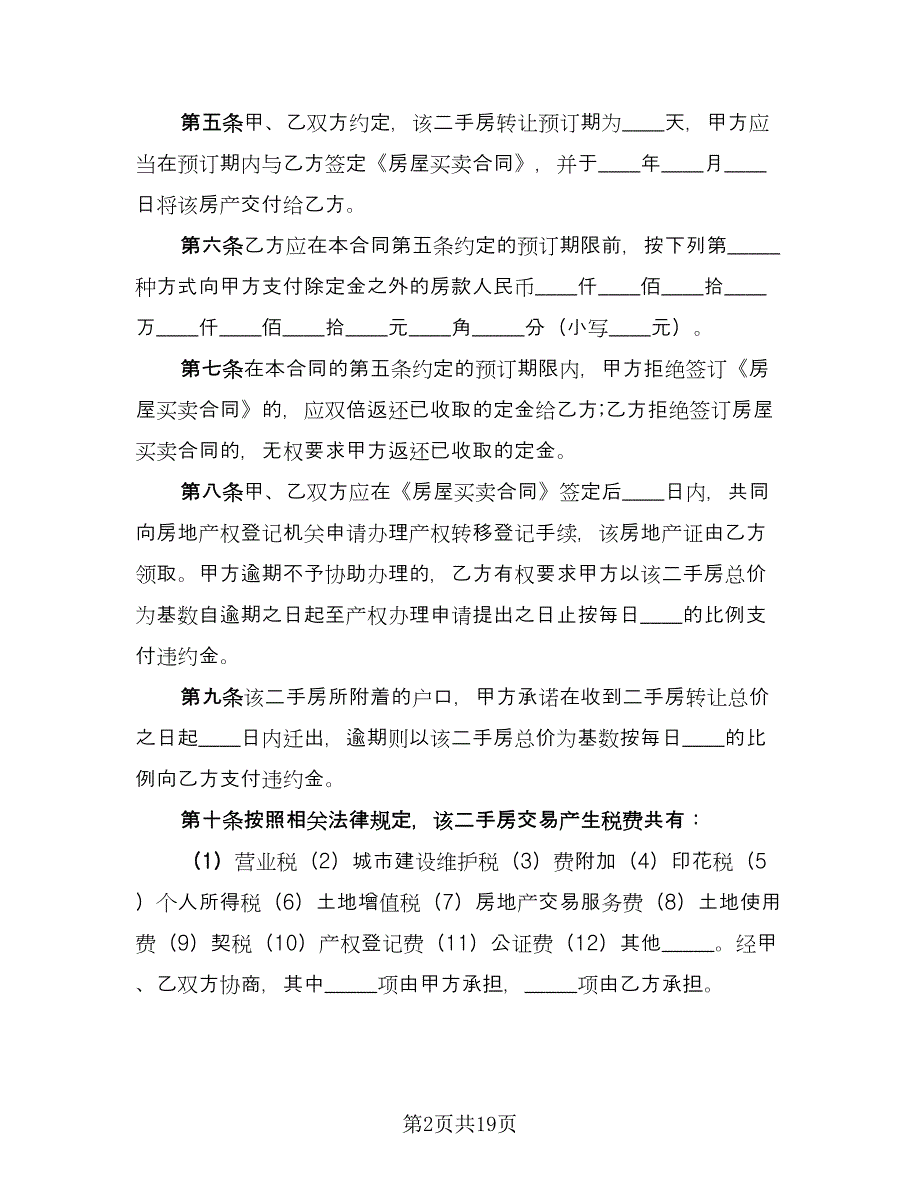 第五条甲、乙双方约定，该二手房转让预订期为____天，甲方应
当在预订期内与乙方签定《房屋买卖合同》，并于____年____月____
日将该房产交付给乙方。
第六条乙方应在本合同第五条约定的预订期限前，按下列第_____
种方式向甲方支付除定金之外的房款人民币____仟____佰____拾____
万____仟____佰____拾____元____角_____分（小写____元）。
第七条在本合同的第五条约定的预订期限内，甲方拒绝签订《房
屋买卖合同》的，应双倍返还已收取的定金给乙方；乙方拒绝签订房屋
买卖合同的，无权要求甲方返还已收取的定金。
第八条甲、乙双方应在《房屋买卖合同》签定后____日内，共同
向房地产权登记机关申请办理产权转移登记手续，该房地产证由乙方
领取。甲方逾期不予协助办理的，乙方有权要求甲方以该二手房总价
为基数自逾期之日起至产权办理申请提出之日止按每日____的比例支
付违约金。
第九条该二手房所附着的户口，甲方承诺在收到二手房转让总价
之日起____日内迁出，逾期则以该二手房总价为基数按每日____的比
例向乙方支付违约金。
第十条按照相关法律规定，该二手房交易产生税费共有：
（1）营业税（2）城市建设维护税（3）费附加（4）印花税（5
）个人所得税（6）土地增值税（7）房地产交易服务费（8）土地使用
费（9）契税（10）产权登记费（11）公证费（12）其他_____。经甲
、乙双方协商，其中_____项由甲方承担，_____项由乙方承担。
第2页共19页